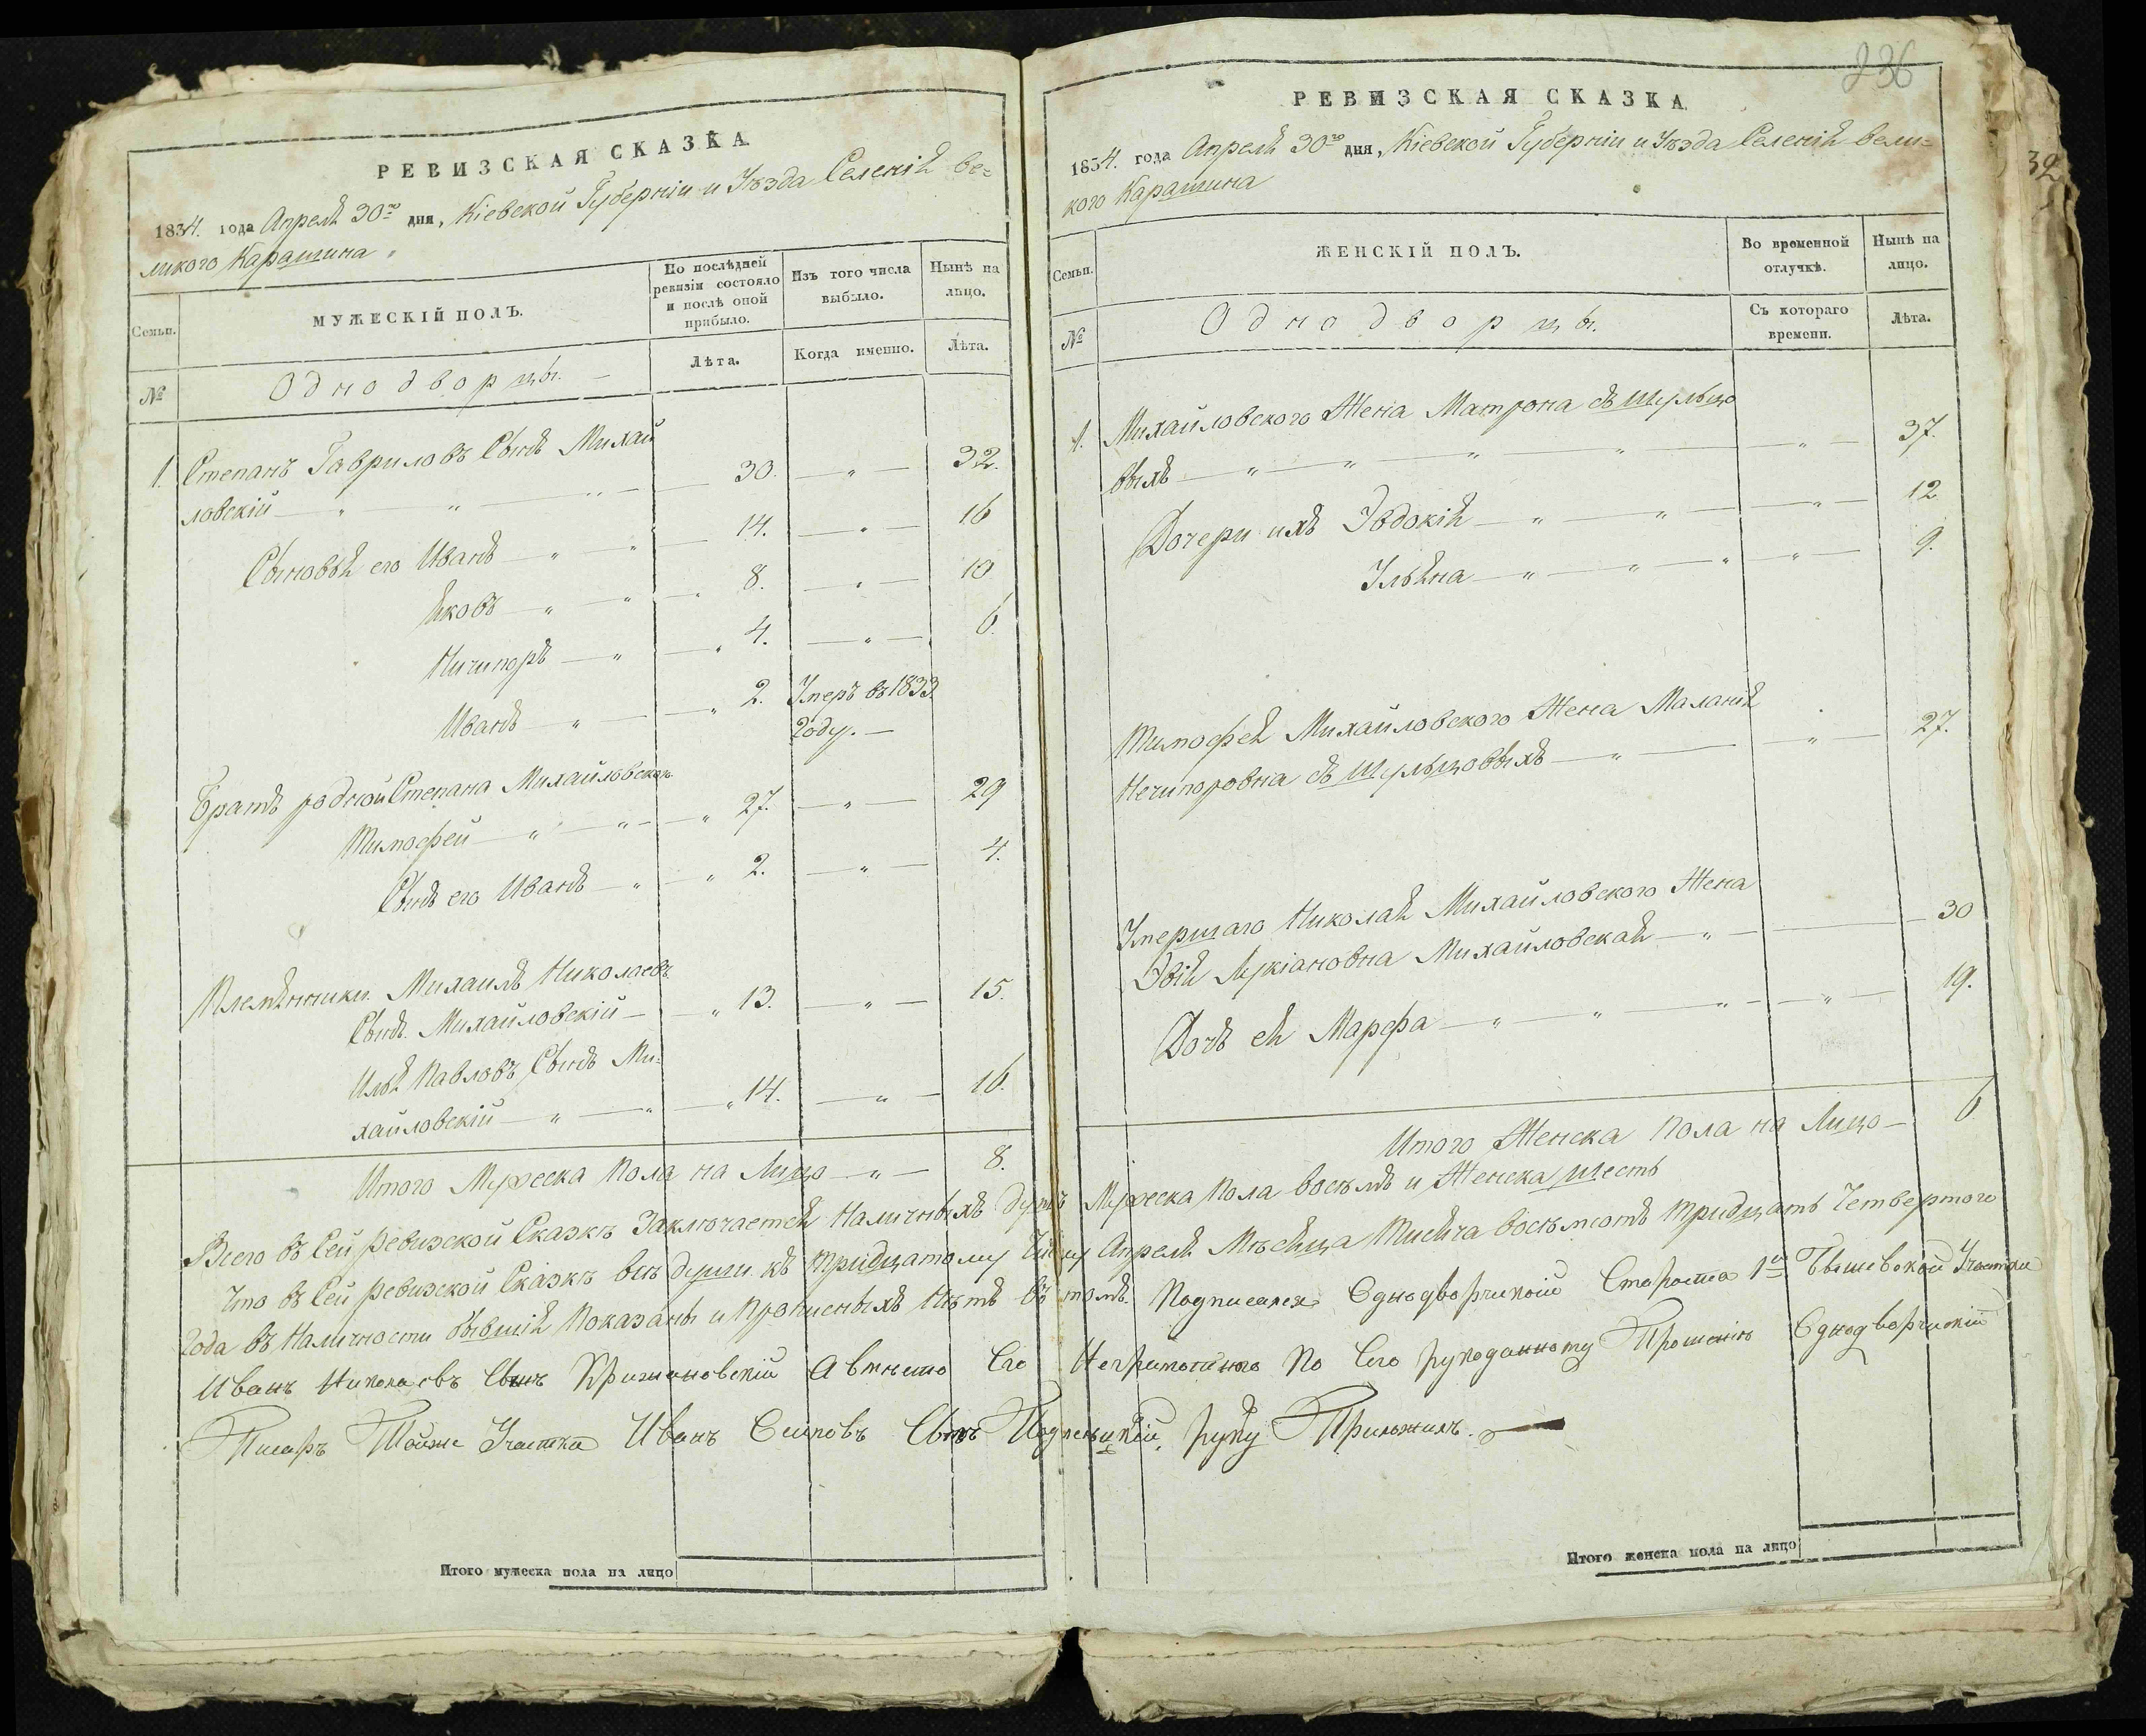 РЕВИЗСКАЯ СКАЗКА
1834. года Апреля 30го дня, Кіевской Губерніи и Уѣзда Селенія ве=
ликого Карашина
Семьи.
МУЖЕСКІЙ ПОЛЪ.
По послѣдней ревизіи состояло и послѣ оной прибыло.
Изъ того числа выбыло.
Нынѣ на лицо.
№
Однодворцы.
Лѣта.
Когда именно.
Лѣта.
1. Степанъ Гавриловъ Сынъ Михай
ловскій 30. 32.
Сыновья его Иванъ 14. 16
Яковъ 8. 10
Ничипоръ 4. 6.
Иванъ 2. Умеръ въ 1833
году.
Братъ родной Степана Михайловского
Тимофей 27. 29
Сынъ его Иванъ 2. 4.
Племянники. Михаилъ Николаевъ
Сынъ. Михайловскій 13. 15.
Илья Павловъ Сынъ Ми=
хайловскій 14. 16.
Итого Мужеска Пола на Лицо 8.
236
32
РЕВИЗСКАЯ СКАЗКА
1834. года Апреля 30го дня, Кіевской Губерніи и Уѣзда Селенія вели=
кого Карашина
Семьи.
ЖЕНСКІЙ ПОЛЪ.
Во временной отлучкѣ.
Нынѣ на лицо.
№
Однодворцы.
Съ котораго времени.
Лѣта.
1. Михайловского Жена Матрона съ Шульцо
выхъ 37.
Дочери ихъ Эвдокія 12
Ульяна 9.
Тимофея Михайловского Жена Маланія
Нечипоровна съ Шульцовыхъ 27.
Умершаго Николая Михайловского Жена
Эвія Лукіановна Михайловская 30
Дочь ея Марфа 19.
Итого Женска Пола на Лицо 6
Всего въ Сей Ревизской Сказкѣ Заключается Наличныхъ душъ Мужеска Пола восѣмъ и Женска шесть
Что въ Сей Ревизской Сказкѣ всѣ души къ тридцатому Числу Апреля Мѣсяца Тисяча восѣмсотъ тридцать Четвертого
Года въ Наличности бывшія Показаны и Прописныхъ Нѣтъ въ томъ. Подписался Однодворчискій Староста 1й Бышевской Участки
Иванъ Николаевъ Сынъ Крижановскій а вмѣсто Его Неграмотного По Его рукоданному Прошенію Однодворчискій
Писаръ Тойже Участки Иванъ Осиповъ Сынъ руку Приложилъ.
Итого мужеска пола на лицо
Итого женска пола на лицо